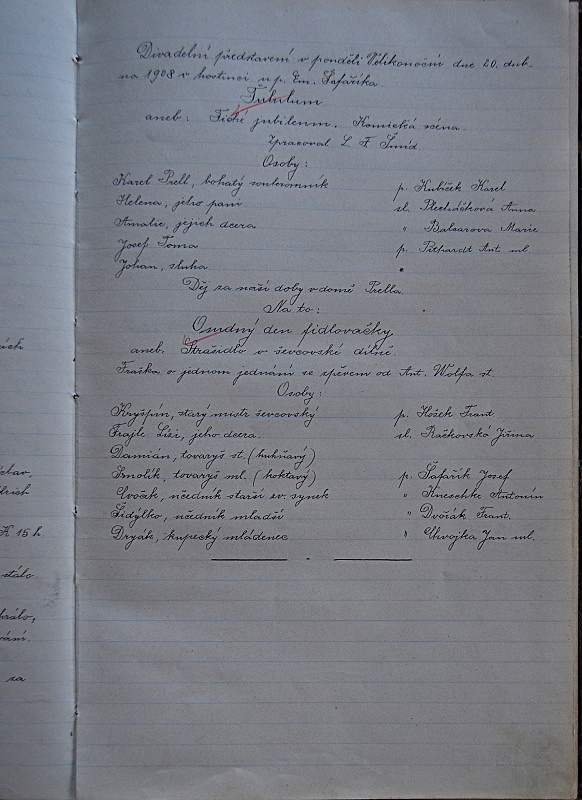 Divadelní představení v pondělí Velikonoční dne 20. dub-
na 1908 v hostinci u p. Em. Šafaříka.
aneb: Tiché jubileum. Komická scéna.
Zpracoval L. F. Šmíd
Osoby:
Karel Prell, bohatý soukromník p. Kubíček Karel
Helena, jeho paní sl. Plecháčková Anna
Amalie, jejich dcera " Balounova Marie
Josef Toma p. Ant. ml.
Johan, sluha "
Děj za naší doby v domě Prella.
Na to:
Osudný den fidlovačky,
aneb. Strašidlo v ševcovské dílně.
Fraška o jednom jednání se zpěvem od Ant. Wolfa st.
Osoby:
Kryšpín, starý mistr ševcovský p. Hošek Frant
Frajle Lízi, jeho dcera. sl. Račkovská
Damián, tovaryš st. (huhňavý)
Smolík, tovaryš ml. (koktavý) p. Šafařík Josef
Cvoček, učedník starší ev. synek " Kneschke Antonín
Šidýlko, učedník mladší " Dvořák Frant.
Dryák, kupecký mládenec " Chvojka Jan ml.
K 15 h
stálo
za